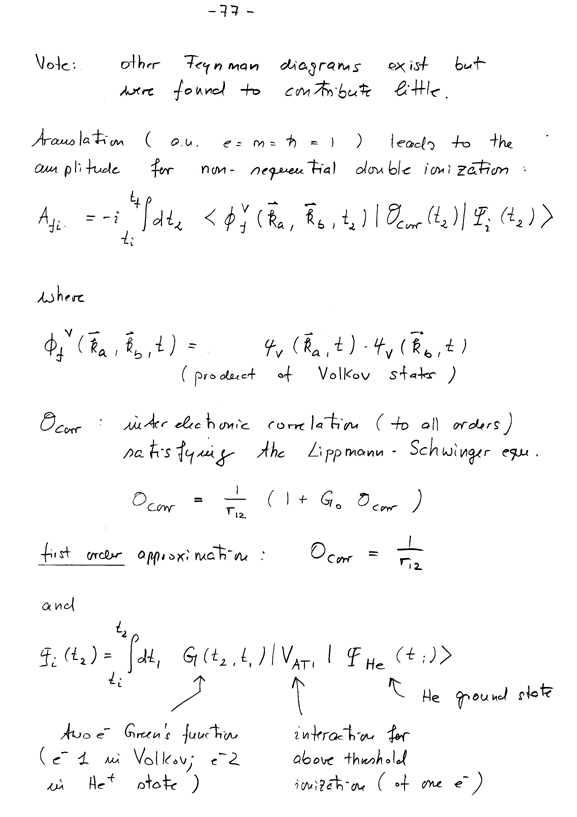 -77-
Note: other Feynman diagrams exist but
were found to contribute little.
translation ( a.u. e = m = ħ = 1 ) leads to the
amplitude for non-sequential double ionization :
A_fi = -i ∫_{t_i}^{t_f} dt₂ < ϕ_f^V (k⃗_a, k⃗_b, t₂) | O_corr (t₂) | Ψ_i (t₂) >
where
ϕ_f^V (k⃗_a, k⃗_b, t) = φ_V (k⃗_a, t) · φ_V (k⃗_b, t)
( product of Volkov states )
O_corr : interelectronic correlation ( to all orders )
satisfying the Lippmann - Schwinger equ.
O_corr = 1/r₁₂ ( 1 + G₀ O_corr )
first order approximation : O_corr = 1/r₁₂
and
Ψ_i (t₂) = ∫_{t_i}^{t₂} dt₁ G(t₂, t₁) | V_ATI | Ψ_He (t_i) >
He ground state
two e⁻ Green's function
( e⁻ 1 in Volkov; e⁻ 2
in He⁺ state )
interaction for
above threshold
ionization ( of one e⁻ )